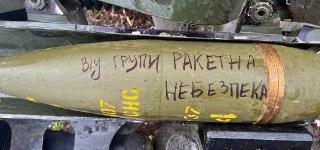 від ГРУПИ РАКЕТНА
НЕБЕЗПЕКА